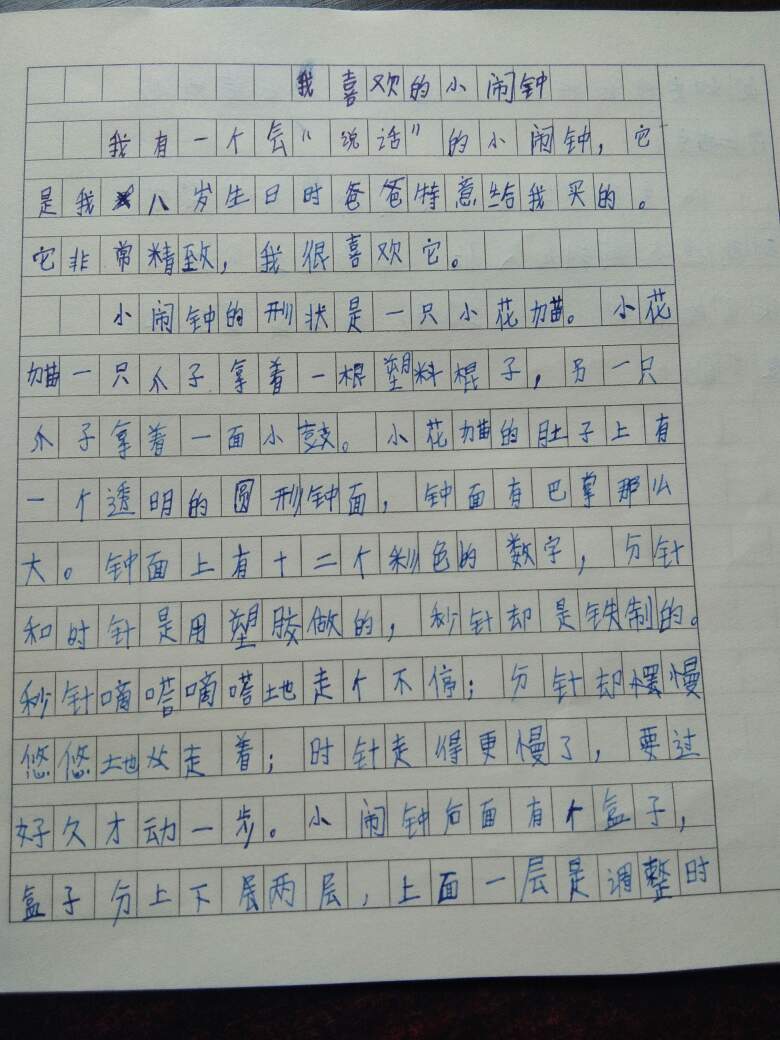 我喜欢的小闹钟
我有一个会“说话”的小闹钟，它
是我八岁生日时爸爸特意给我买的。
它非常精致，我很喜欢它。
小闹钟的形状是一只小花猫。小花
猫一只爪子拿着一根塑料棍子，另一只
爪子拿着一面小鼓。小花猫的肚子上有
一个透明的圆形钟面，钟面有巴掌那么
大。钟面上有十二个彩色的数字，分针
和时针是用塑胶做的，秒针却是铁制的。
秒针嘀嗒嘀嗒地走个不停；分针却慢
悠悠地走着；时针走得更慢了，要过
好久才动一步。小闹钟后面有个盒子，
盒子分上下层两层，上面一层是调整时